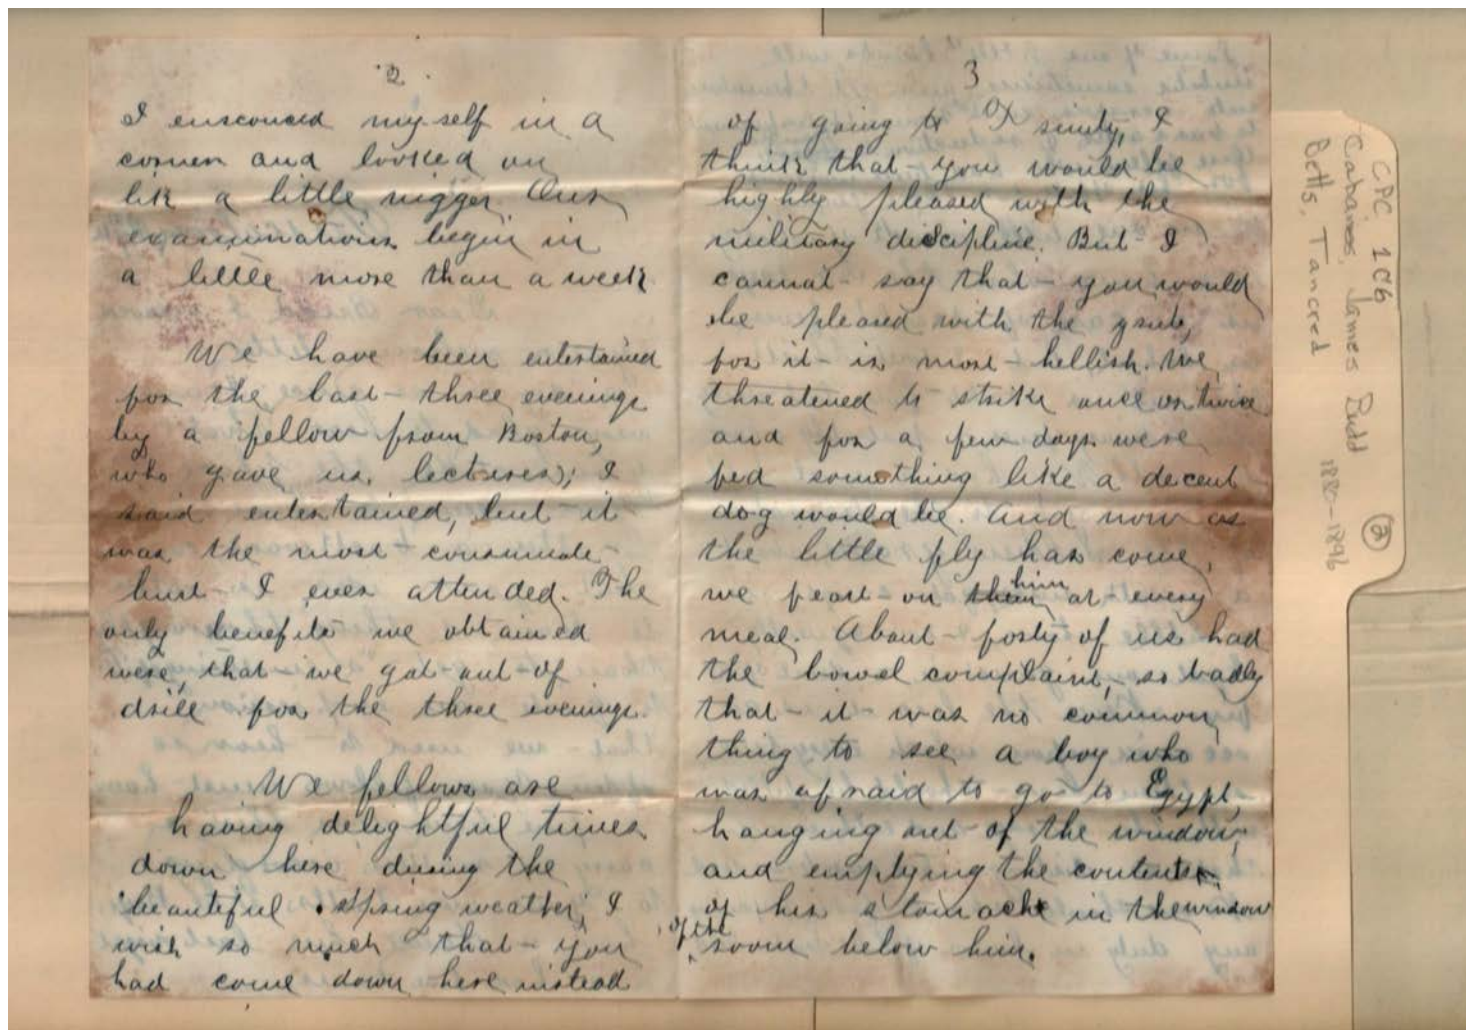 2
I ensconced myself in a
corner and looked on
lik a little nigger. Our
examinations begin in
a little more than a week
We have been entertained
for the last three evenings
by a fellow from Boston,
who gave us lectures; I
said entertained, but it
was the most consumate
bust I ever attended. The
only benefits we obtained
were, that we got out of
drill for the three evenings.
We fellows are
having delightful times
down here during the
beautiful spring weather, I
wish so much that you
had come down here instead
3
of going to Trinity, I
think that you would be
highly pleased with the
military discipline. But I
cannot say that you would
be pleased with the grub,
for it is most hellish. We
threatened to strike once or twice
and for a few days were
fed something like a decent
dog would be. And now as
the little fly has come,
we feast on them him at every
meal. About forty of us had
the bowel complaint, so badly
that it was no common
thing to see a boy who
was afraid to go to Egypt,
hanging out of the window,
and emptying the contents
of his stomache in the window
of the room below him.
CPC 1C6
Cabaness, James Budd
Betts, Tancred
1880-1896
(2)